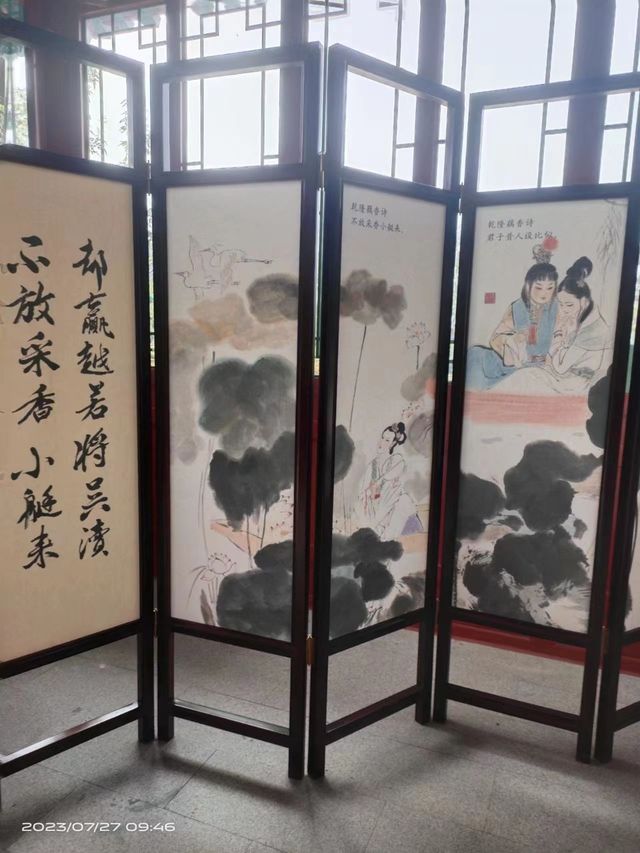 却赢越若将吴溃
不放采香小艇来
乾隆藕香诗
不放采香小艇来。
乾隆藕香诗
君子昔人设比
2023/07/27 09:46